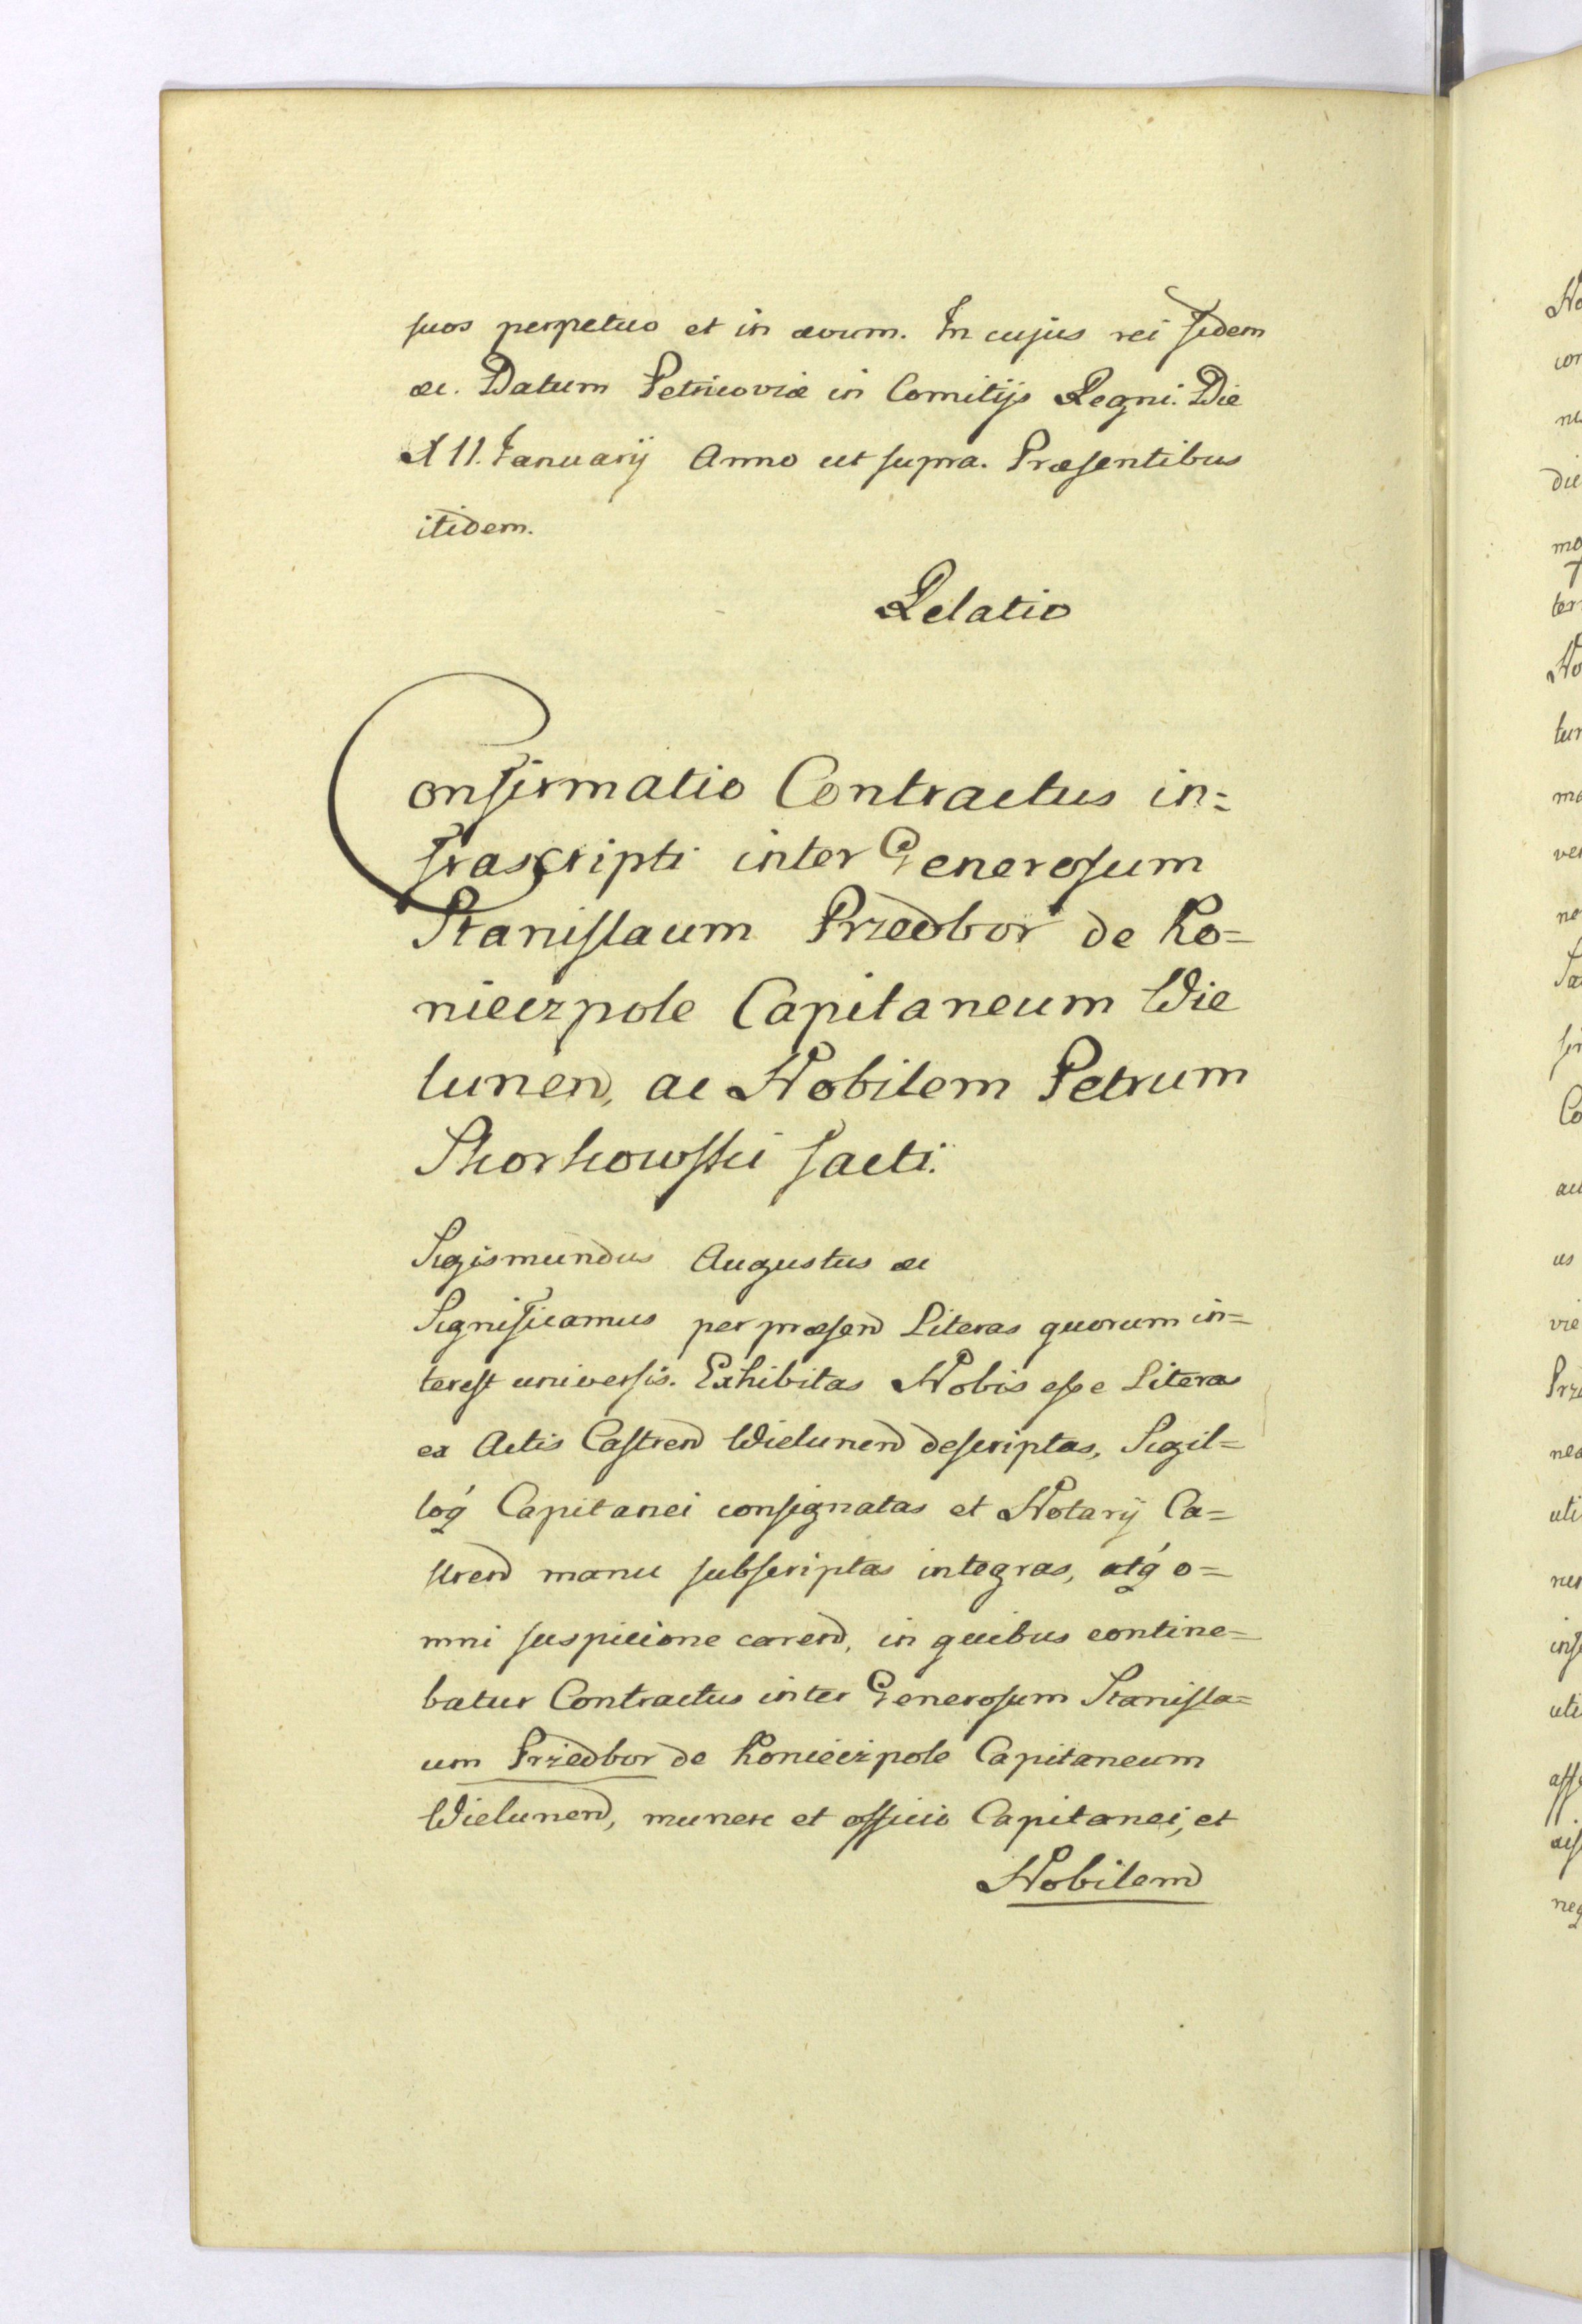 suos perpetuo et in ævum. In cujus rei fidem
ac. Datum Petricoviæ in Comitijs Regni. Die
11. Januarij Anno ut supra. Præsentibus
itidem.
Relatio
Confirmatio Contractus in=
frascripti inter Generosum
Stanislaum Przedbor de Ko=
nieczpole Capitaneum Wie
lunen, ac Nobilem Petrum
facti.
Sigismundus Augustus ac
Significamus per præsen Literas quorum in=
terest universis. Exhibitas Nobis esse Literas
ex Actis Castren Wielunen descriptas, Sigil=
loq́ Capitanei consignatas et Notarij Ca=
stren manu subscriptas integras, atq́ o=
mni suspicione caren, in quibus contine=
batur Contractus inter Generosum Stanisla=
um Przedbor de Konieczpole Capitaneum
Wielunen, munere et officio Capitanei, et
Nobilem